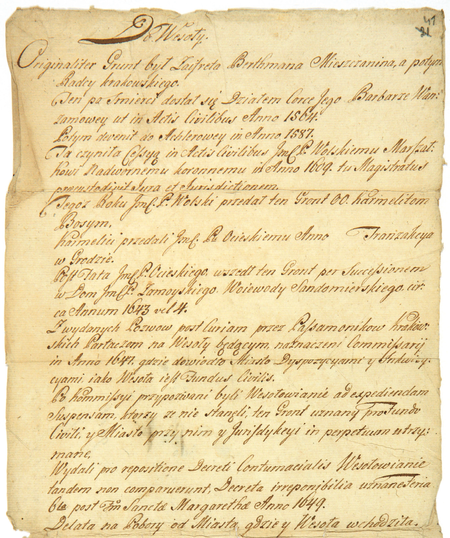 41
21
Do Wesoły.
Originaliter Grunt był Zaifreta Bethmana Mieszczanina, a potym
Radcy krakowskiego.
Ten po śmierci dostał się Działem Corce Jego Barbarze Wan
zamowey ut in Actis Civilibus Anno 1564.
Potym devenit do Achlerowey in Anno 1587.
Ta czyniła Cessyą in Actis Civilibus JmC. P. Wolskiemu Marszał
kowi Nadwornemu koronnemu in Anno 1609. tu Magistratus
praecustodivit Jura et Jurisdictionem.
Tegoż Roku JmC. P. Wolski przedał ten Gront OO. karmelitom
Bosym.
karmelici przedali JmC. Pu Ocieskiemu Anno Tranzakcya
w Grodzie.
Post Fata JmC. P. Ocieskiego, wszedł ten Gront per Successionem
w Dom JmC. P. Zamoyskiego Woiewody Sandomierskiego, cir
ca Annum 1643 vel 4.
Z wydanych Pozwow post Curiam przez Passamonikow krakow
skich Partaczom na Wesoły będącym, naznaczeni Commissarij
in Anno 1647. gdzie dowiodło Miasto Dyspozycyami y Inkwizy
cyami iako Wesoła iest Fundus Civilis.
Po kommissyi przypozwani byli Wesołowianie ad expediendam
Suspensam, ktorzy ze nie stanęli, ten Gront uznany pro Fundo
Civili, y Miasto przy nim y Jurisdykcyi in perpetuum utrzy:
mane.
Wydali po repositione Decreti Contumacialis Wesołowianie
tandem non comparuerunt, Decreta irreponibilia uznane feria
6ta post Fm Sanctae Margarethae Anno 1649.
Delata na Pobory od Miasta, gdzie y Wesoła wchodziła.